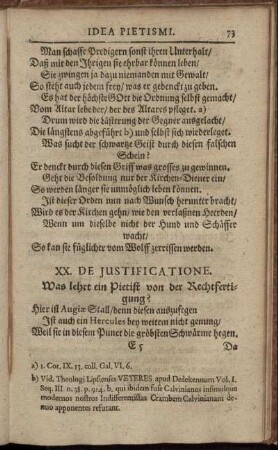 IDEA PIETISMI. 73
Man schaffe Predigern sonst ihren Unterhalt/
Daß mit den Ihrigen sie ehrbar können leben/
Sie zwingen ja dazu niemanden mit Gewalt/
So steht auch jedem frey/ was er gedenckt zu geben.
Es hat der höchste GOtt die Ordnung selbst gemacht/
Vom Altar lebe der/ der des Altares pfleget. a)
Drum wird die Lästerung der Gegner ausgelacht/
Die längstens abgeführt b) und selbst sich wiederleget.
Was sucht der schwartze Geist durch diesen falschen
Schein?
Er denckt durch diesen Griff was grosses zu gewinnen.
Geht die Besoldung nur der Kirchen-Diener ein/
So werden länger sie unmöglich leben können.
Ist dieser Orden nun nach Wunsch herunter bracht/
Wird es der Kirchen gehn/ wie den verlaßnen Heerden/
Wenn um dieselbe nicht der Hund und Schäffer
wacht/
So kan sie füglicher vom Wolff zerrissen werden.
XX. DE JUSTIFICATIONE.
Was lehrt ein Pietist von der Rechtferti-
gung?
Hier ist Augiæ Stall/ denn diesen auszufegen
Ist auch ein Hercules bey weitem nicht genung/
Weil sie in diesem Punct die gröbsten Schwärme hegen.
E 5 Da
a) 1. Cor. IX. 13. coll. Gal. VI. 6.
b) Vid. Theologi Lipsienses VETERES apud Dedekennum Vol. I.
Seq. III. n. 38. p. 914. b, qui ibidem fuse Calvinianos insimulque
modernos nostros Indifferentistas Crambem Calvinianam de-
nuo apponentes refutant.